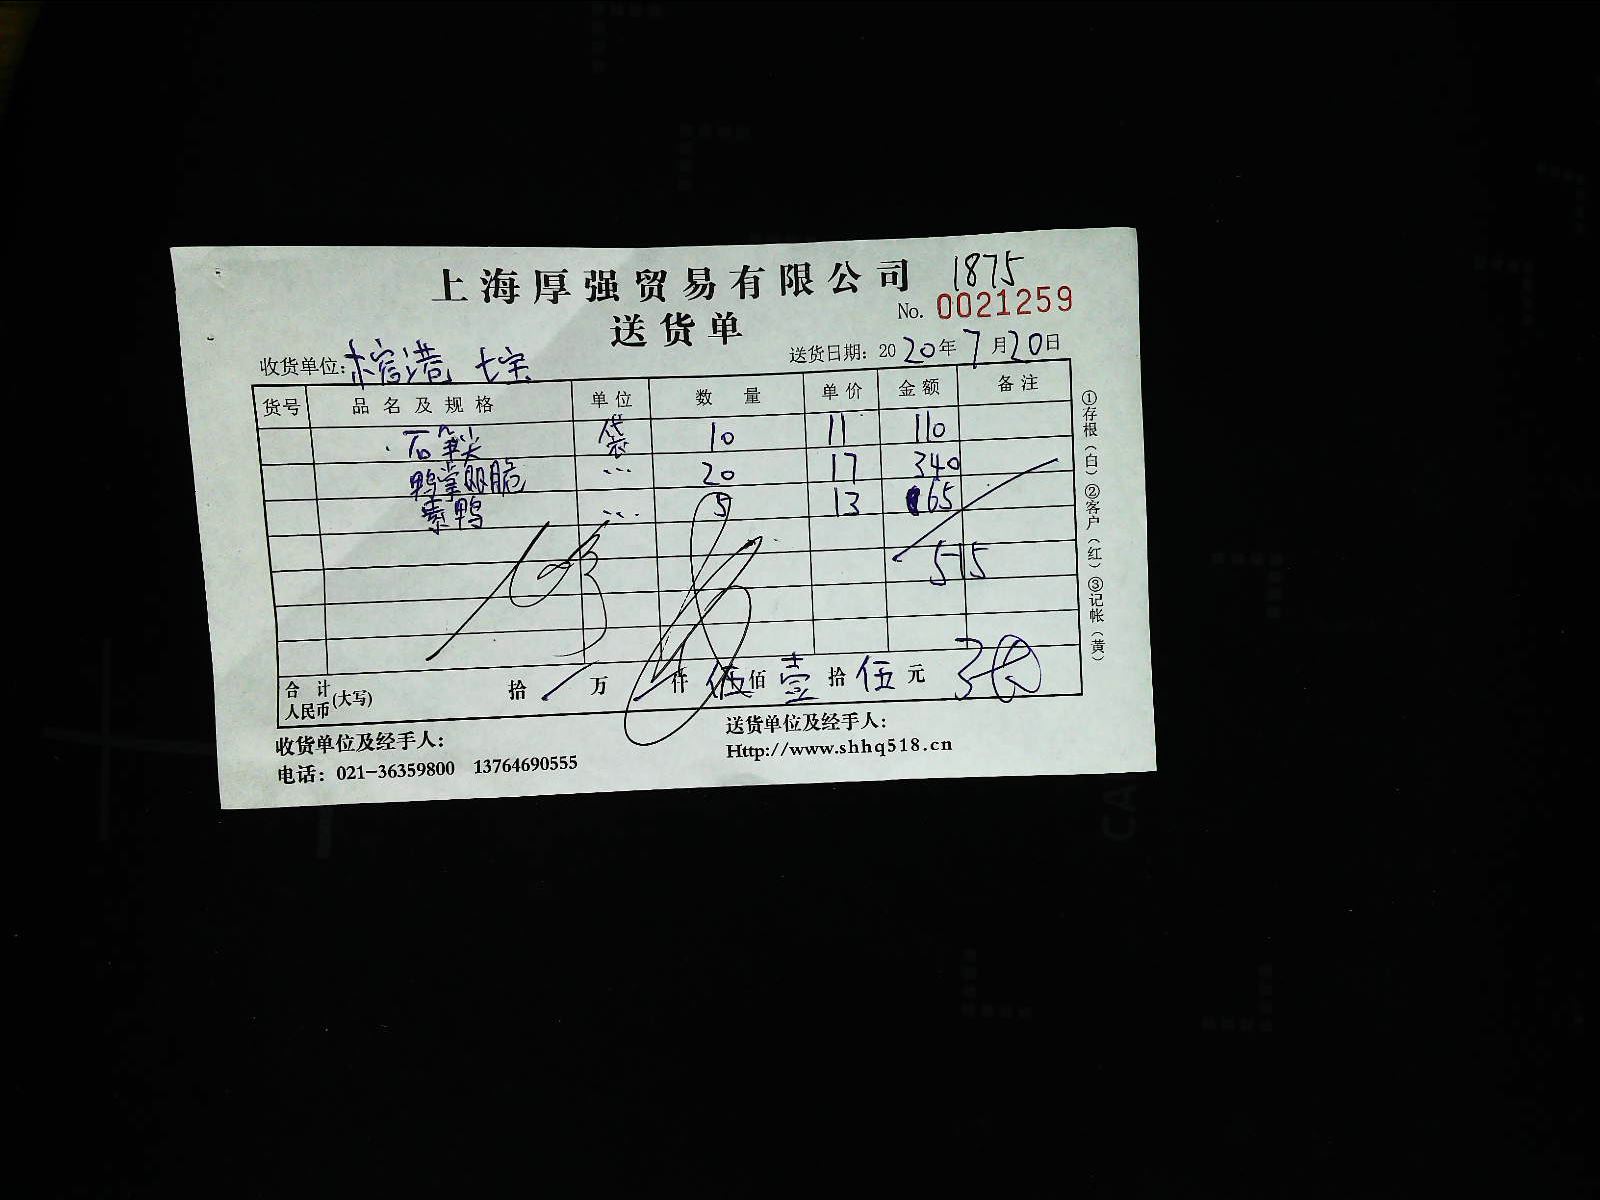 上海厚强贸易有限公司 1875
No. 0021259
送货单
收货单位: 檀港 七宝 送货日期: 2020年7月20日
货号 品名及规格 单位 数量 单价 金额 备注
石笋尖 袋 10 11 110
鸭掌双脆 ... 20 17 340
素鸭 ... 5 13 65
515
合计人民币(大写) 拾 万 仟 伍佰 壹拾 伍元
收货单位及经手人: 送货单位及经手人:
电话: 021-36359800 13764690555 Http://www.shhq518.cn
①存根(白)②客户(红)③记帐(黄)